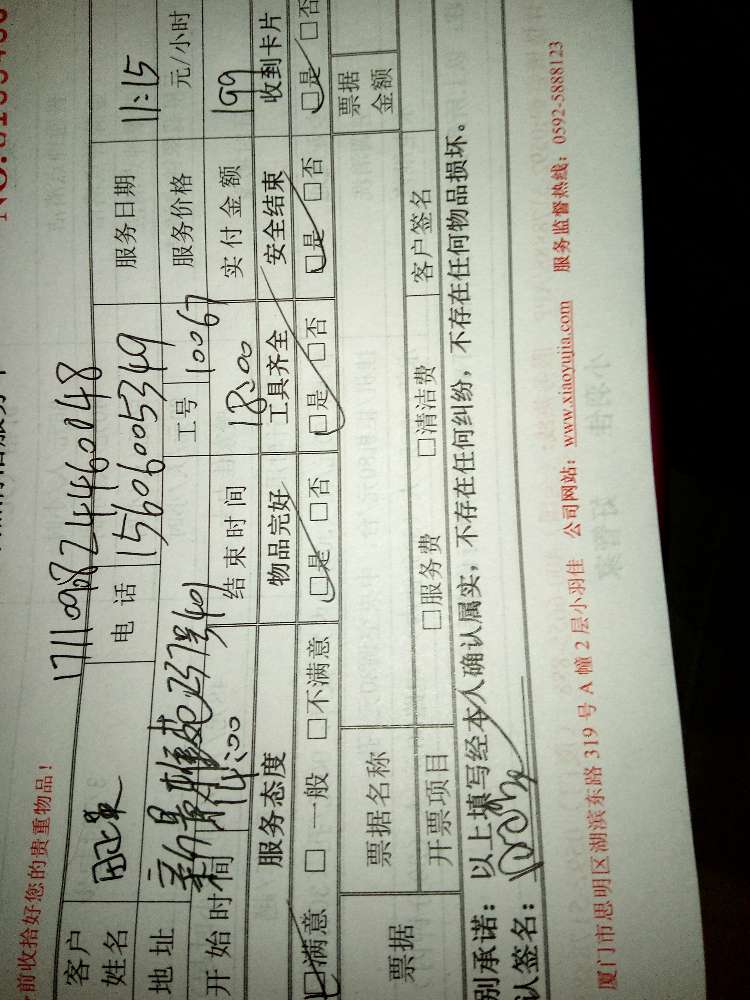 前收拾好您的贵重物品！
17110987244460048
客户姓名 电话 15606005349 服务日期 11:15
地址 工号 10067 服务价格 元/小时
开始时间 14:00 结束时间 18:00 实付金额 199
服务态度 物品完好 工具齐全 安全结束 收到卡片
□满意 □一般 □不满意 □是 □否 □是 □否 □是 □否 □是 □否
票据 票据名称 票据金额
开票项目 □服务费 □清洁费 客户签名
别承诺：以上填写经本人确认属实，不存在任何纠纷，不存在任何物品损坏。
认签名：
厦门市思明区湖滨东路 319 号 A 幢 2 层小羽佳 公司网站：www.xiaoyujia.com 服务监督热线：0592-5888123